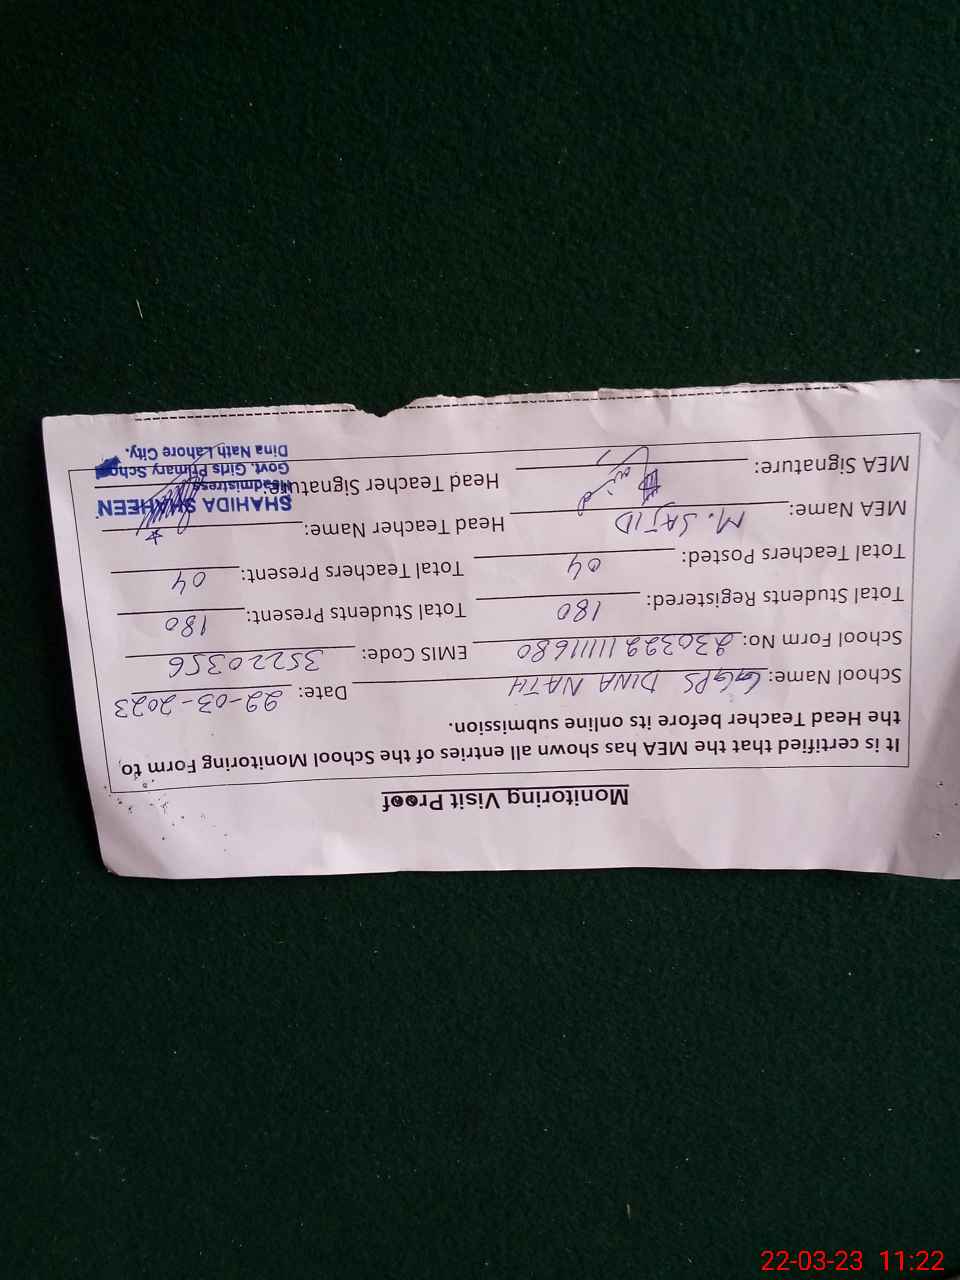 Monitoring Visit Proof
It is certified that the MEA has shown all entries of the School Monitoring Form to,
the Head Teacher before its online submission.
School Name: GGPS DINA NATH Date: 22-03-2023
School Form No: 23032211111680 EMIS Code: 35220356
Total Students Registered: 180 Total Students Present: 180
Total Teachers Posted: 04 Total Teachers Present: 04
MEA Name: M. SAJID Head Teacher Name:
MEA Signature: Head Teacher Signature:
SHAHIDA SHAHEEN
Headmistress
Govt. Girls Primary School
Dina Nath Lahore City.
22-03-23 11:22